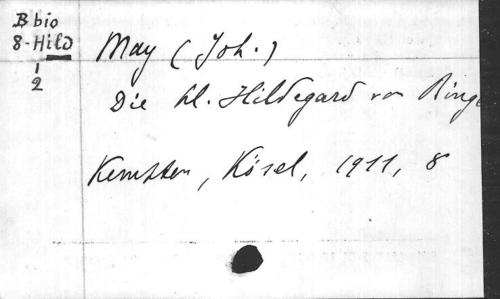 B bio
8-Hild
1
2
May (Joh.)
Die hl. Hildegard von Binge
Kempten, Kösel, 1911, 8